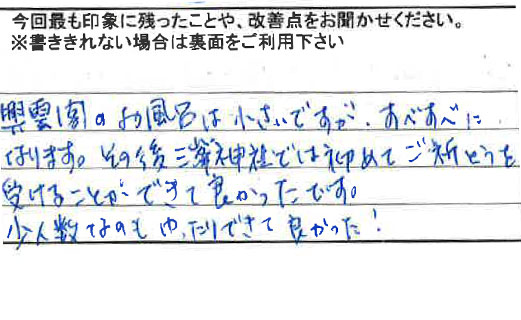 今回最も印象に残ったことや、改善点をお聞かせください。
※書ききれない場合は裏面をご利用下さい
興雲閣のお風呂は小さいですが、すべすべに
なります。その後三峯神社では初めてご祈とうを
受けることができて良かったです。
少人数なのもゆったりできて良かった！